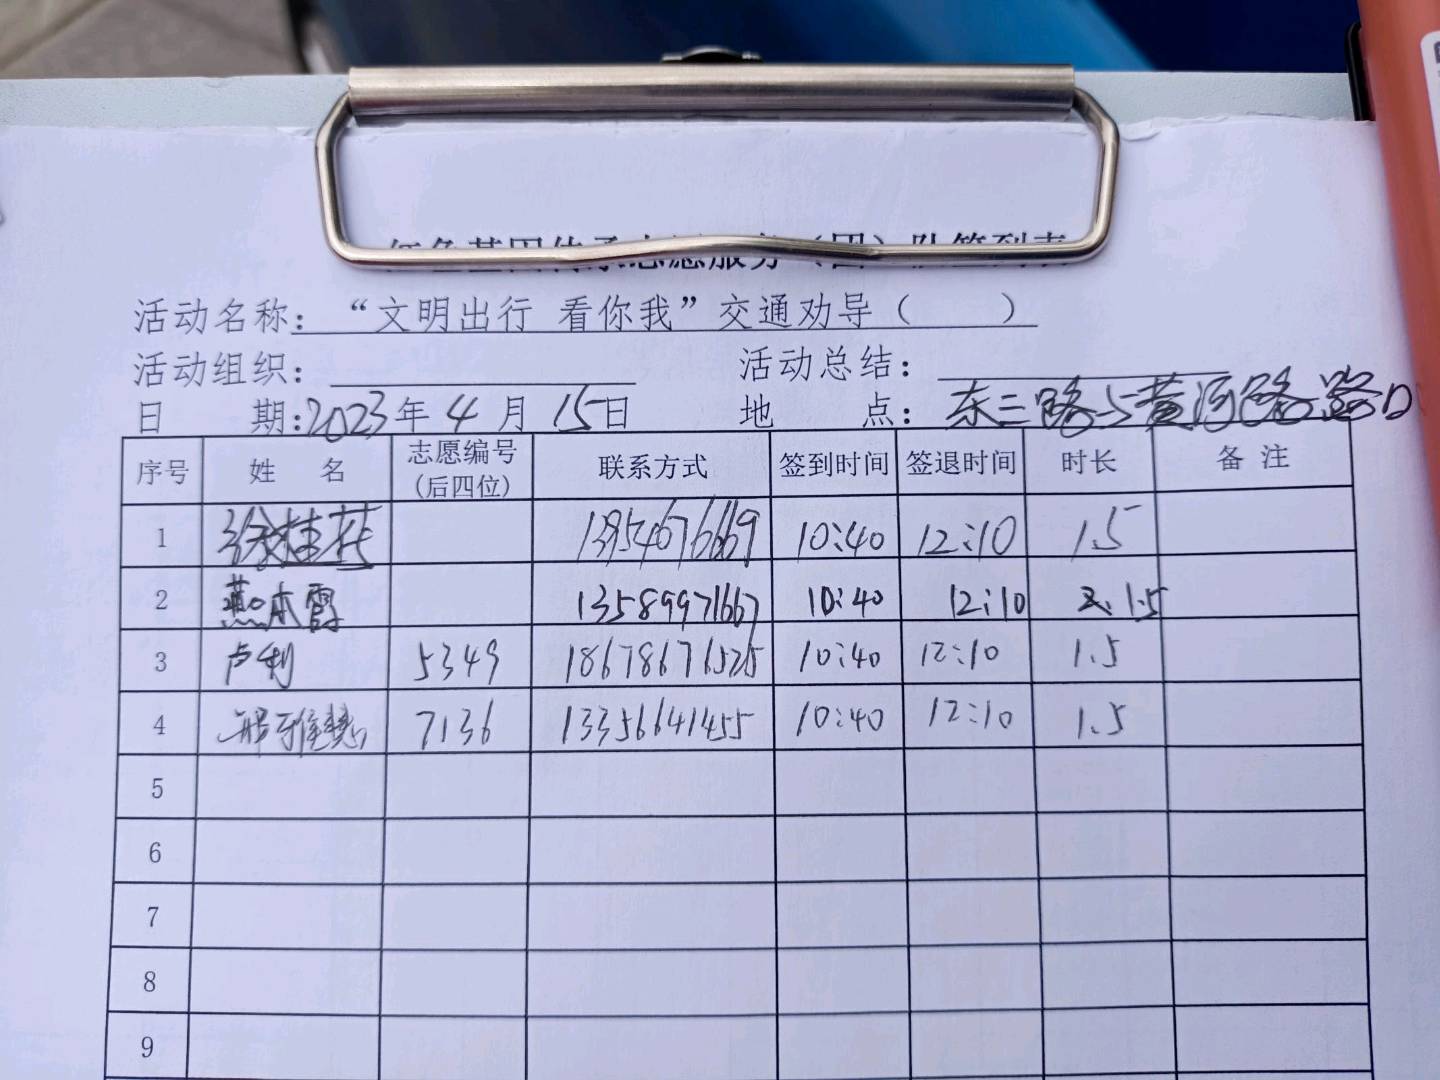 活动名称：“文明出行 看你我”交通劝导（ ）
活动组织： 活动总结：
日 期：2023年4月15日 地 点：东三路与黄河路路口
序号 姓 名 志愿编号（后四位） 联系方式 签到时间 签退时间 时长 备 注
1 徐桂花 10:40 12:10 1.5
2 燕本霞 13589971667 10:40 12:10 1.5
3 卢利 5349 18678676525 10:40 12:10 1.5
4 7136 13356641455 10:40 12:10 1.5
5
6
7
8
9